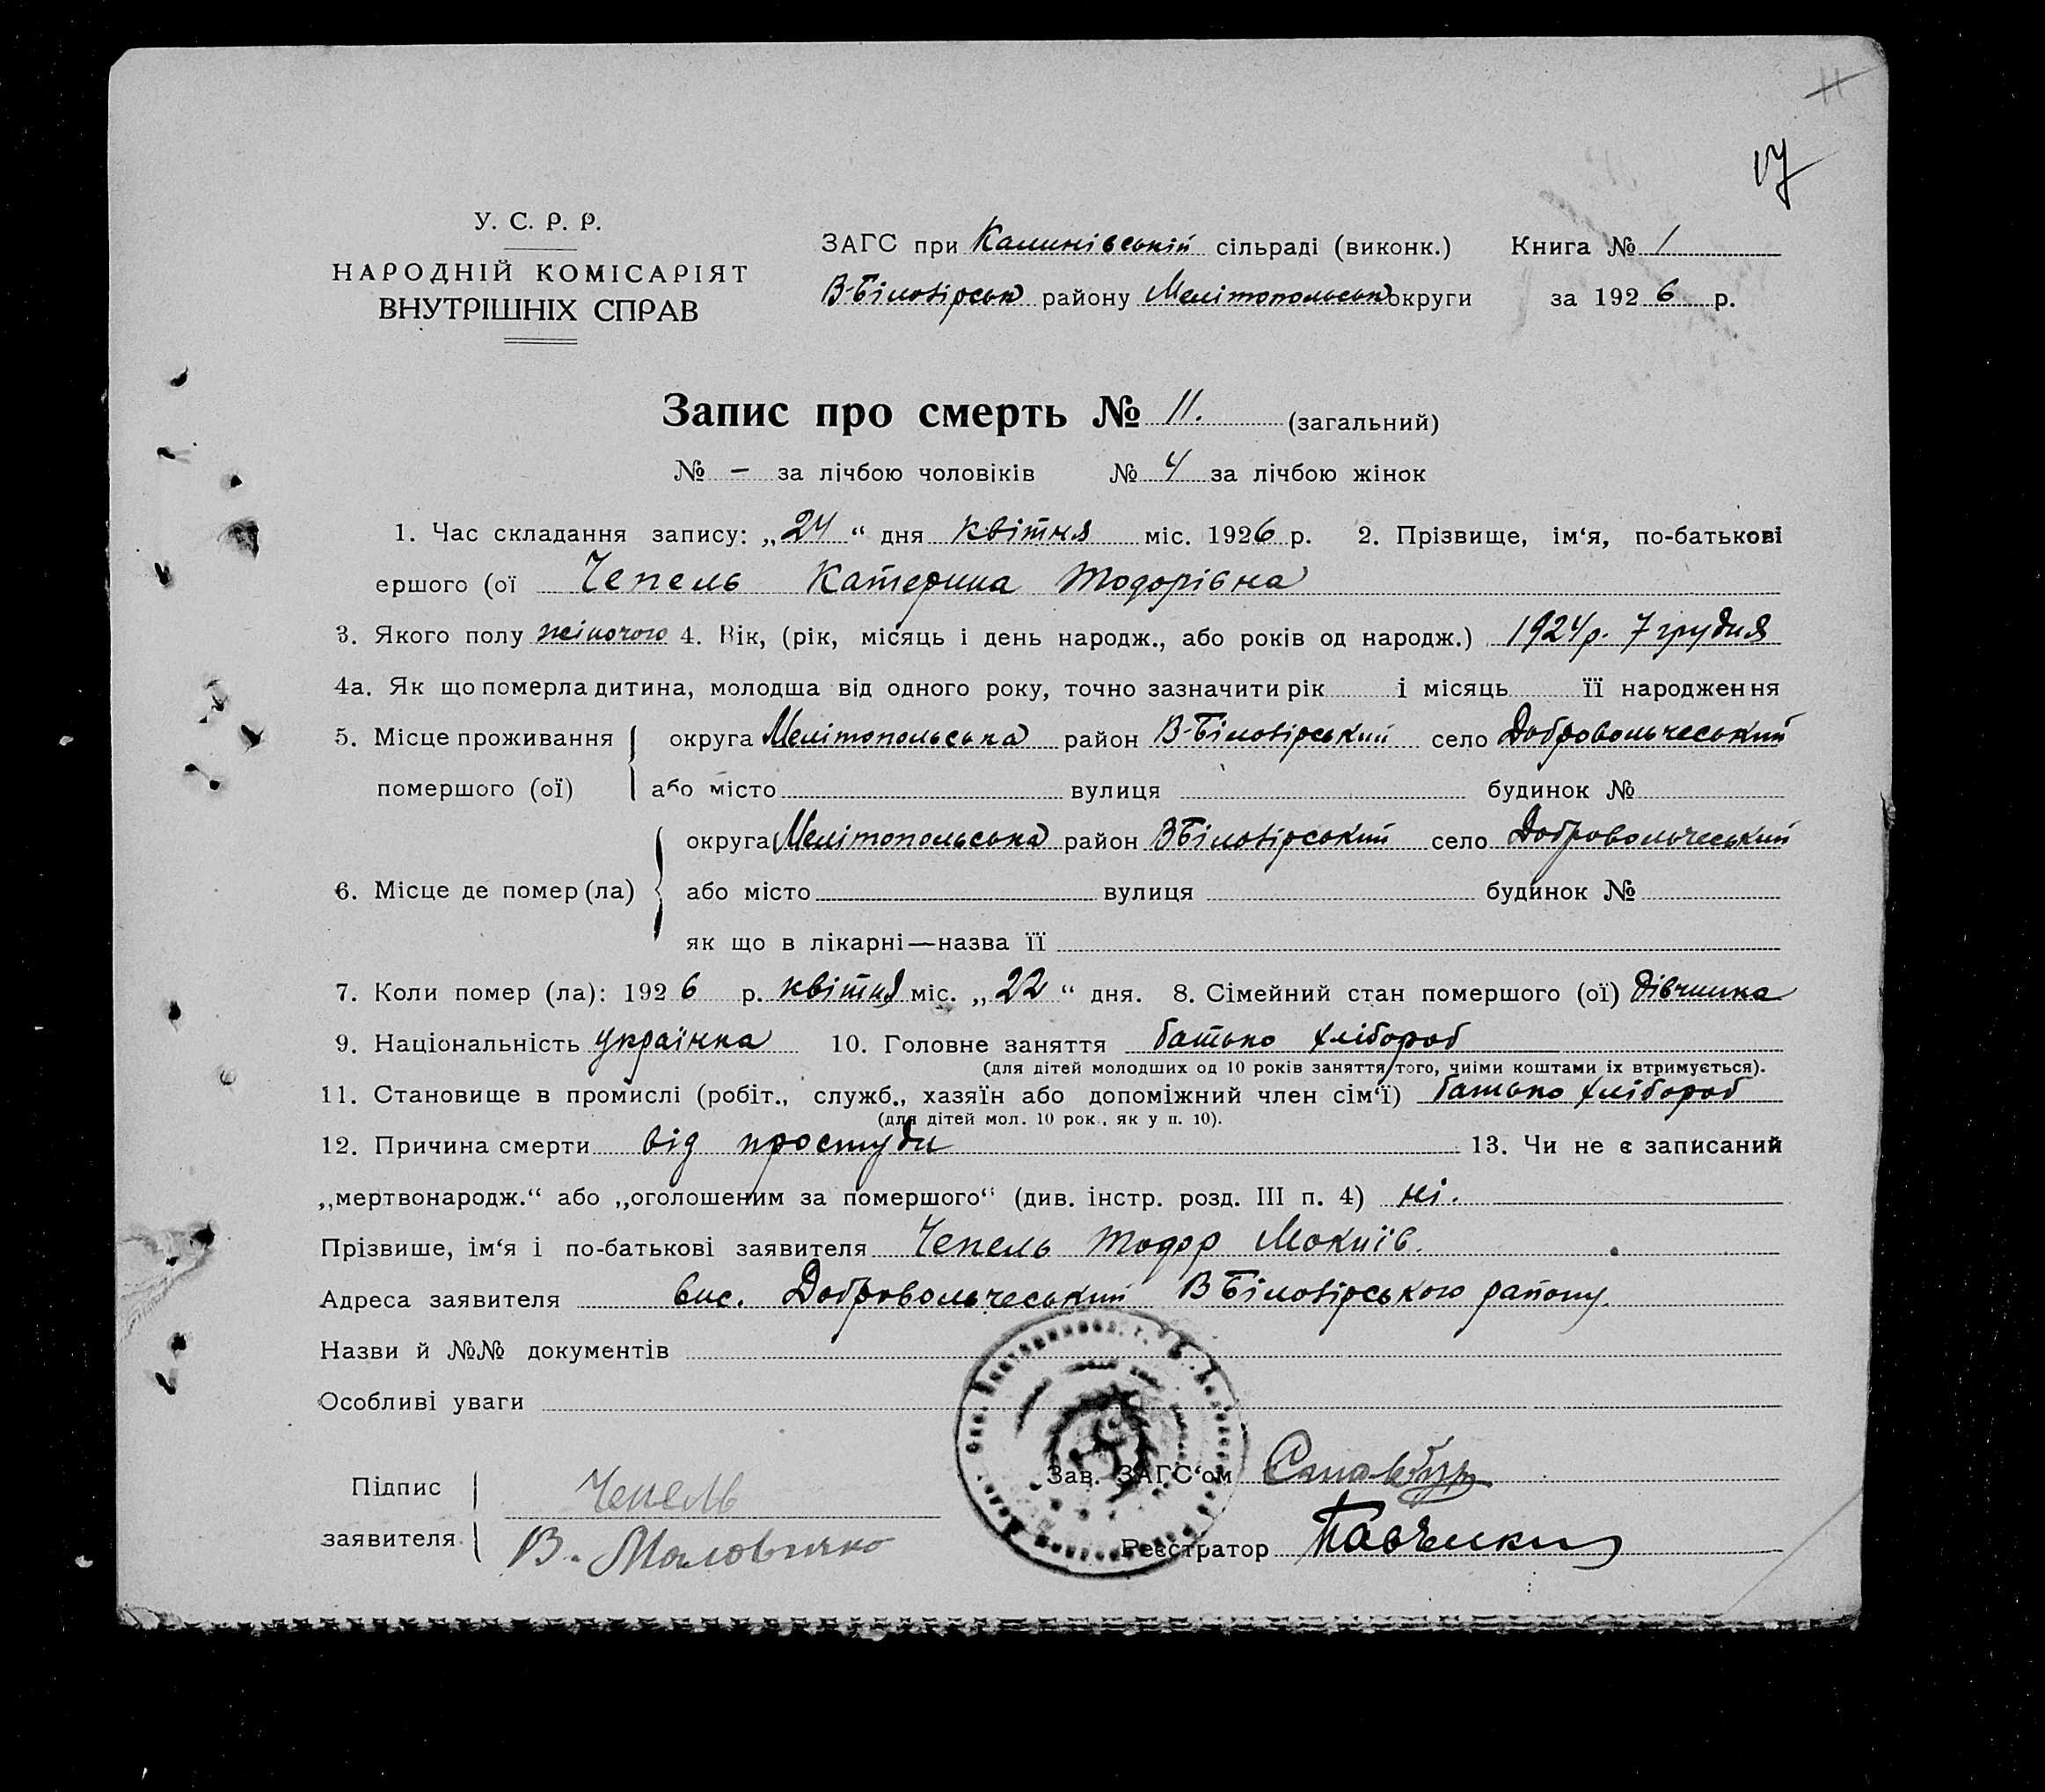 11
17
У. С. Р. Р.
НАРОДНІЙ КОМІСАРІЯТ
ВНУТРІШНІХ СПРАВ
ЗАГС при Калинівській сільраді (виконк.) Книга № 1
В-Білозірськ району Мелітопольськ округи за 1926 р.
Запис про смерть № 11. (загальний)
№ – за лічбою чоловіків № 4 за лічбою жінок
1. Час складання запису: „24“ дня квітня міс. 1926 р. 2. Прізвище, ім‘я, по-батькові
ершого (ої Чепель Катерина Тодорівна
3. Якого полу жіночого 4. Вік, (рік, місяць і день народж., або років од народж.) 1924 р. 7 грудня
4а. Як що померла дитина, молодша від одного року, точно зазначити рік і місяць її народження
5. Місце проживання округа Мелітопольська район В-Білозірський село Добровольчеський
помершого (ої) або місто вулиця будинок №
округа Мелітопольська район ВБілозірський село Добровольчеський
6. Місце де помер (ла) або місто вулиця будинок №
як що в лікарні—назва її
7. Коли помер (ла): 1926 р. квітня міс. „22“ дня. 8. Сімейний стан помершого (ої) дівчинка
9. Національність українка 10. Головне заняття батько хлібороб
(для дітей молодших од 10 років заняття того, чиїми коштами їх втримується).
11. Становище в промислі (робіт., служб., хазяїн або допоміжний член сім‘ї) батько хлібороб
(для дітей мол. 10 рок., як у п. 10).
12. Причина смерти від простуди 13. Чи не є записаний
„мертвонародж.“ або „оголошеним за помершого“ (див. інстр. розд. III п. 4) ні.
Прізвише, ім‘я і по-батькові заявителя Чепель Тодор Мокиїв.
Адреса заявителя вис. Добровольчеський ВБілозірського району.
Назви й №№ документів
Особливі уваги
Підпис Чепель Зав. ЗАГС‘ом
заявителя В. Маловичко Реєстратор